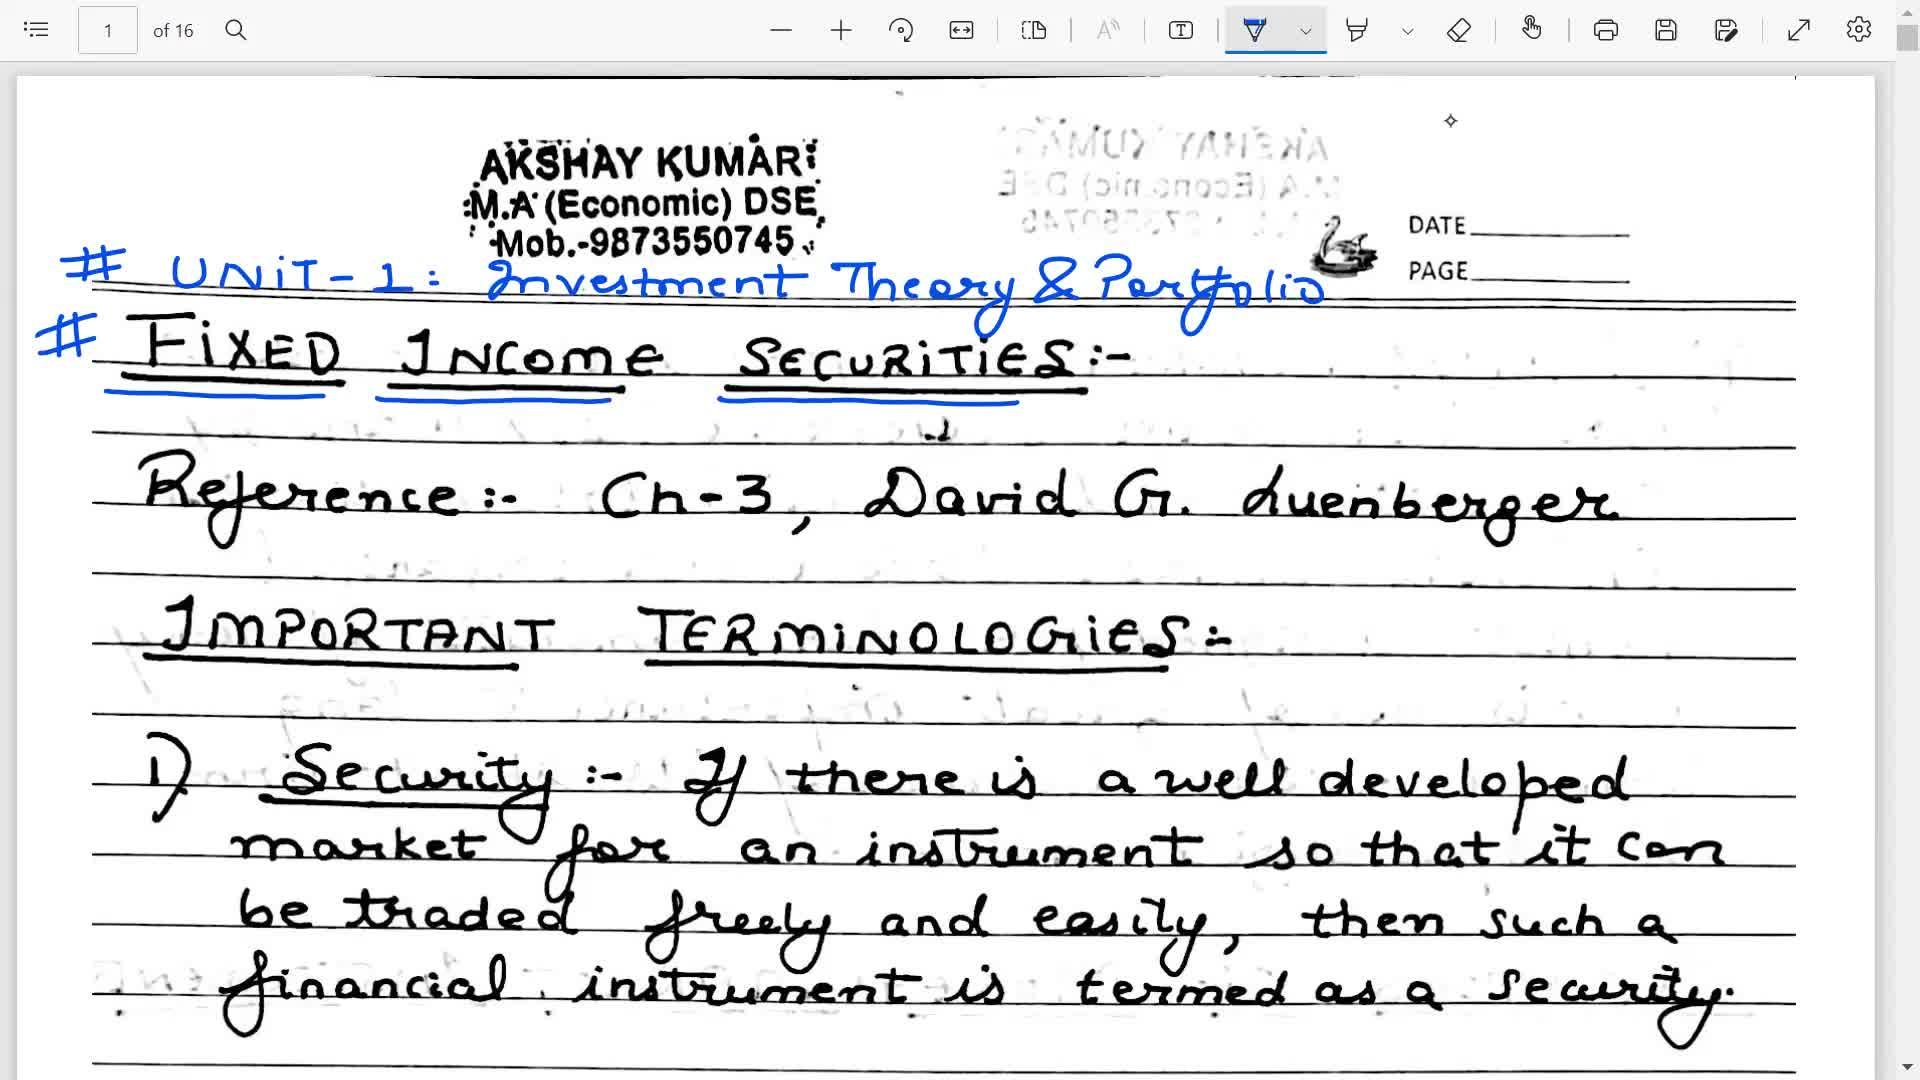 1 of 16
AKSHAY KUMAR
M.A (Economic) DSE
Mob.-9873550745
DATE
PAGE
# UNIT-1: Investment Theory & Portfolio
# FIXED INCOME SECURITIES:-
Reference:- Ch-3, David G. Luenberger
IMPORTANT TERMINOLOGIES:-
1) Security:- If there is a well developed
market for an instrument so that it can
be traded freely and easily, then such a
financial instrument is termed as a security.